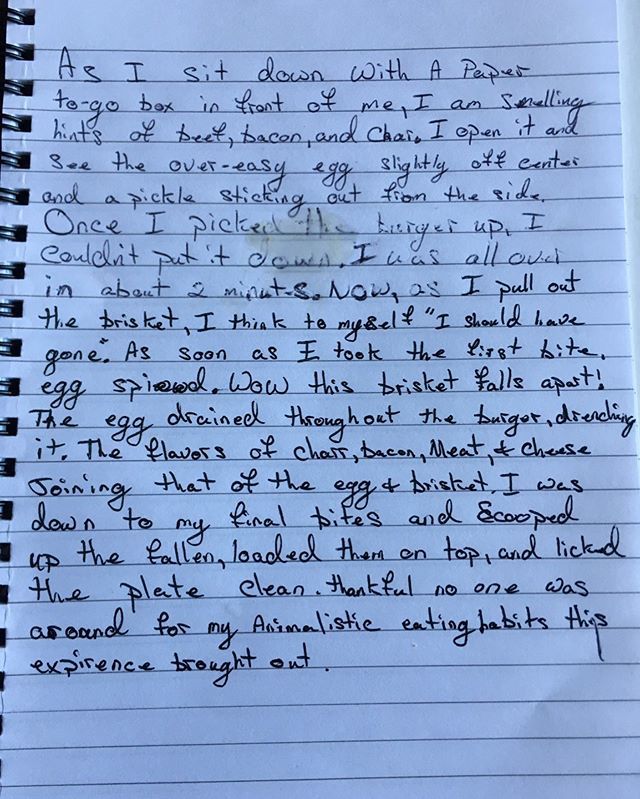 As I sit down with A Paper
to-go box in front of me, I am Smelling
hints of beef, bacon, and Char. I open it and
see the over-easy egg slightly off center
and a pickle sticking out from the side.
Once I picked the burger up, I
couldn't put it down. I was all over
in about 2 minutes. Now, as I pull out
the brisket, I think to myself "I should have
gone". As soon as I took the first bite,
egg. Wow this brisket falls apart!
The egg drained throughout the burger, drenching
it. The flavors of charr, bacon, Meat, & cheese
Joining that of the egg & brisket. I was
down to my final bites and Scooped
up the fallen, loaded them on top, and licked
the plate clean. thankful no one was
around for my Animalistic eating habits this
expirence brought out.